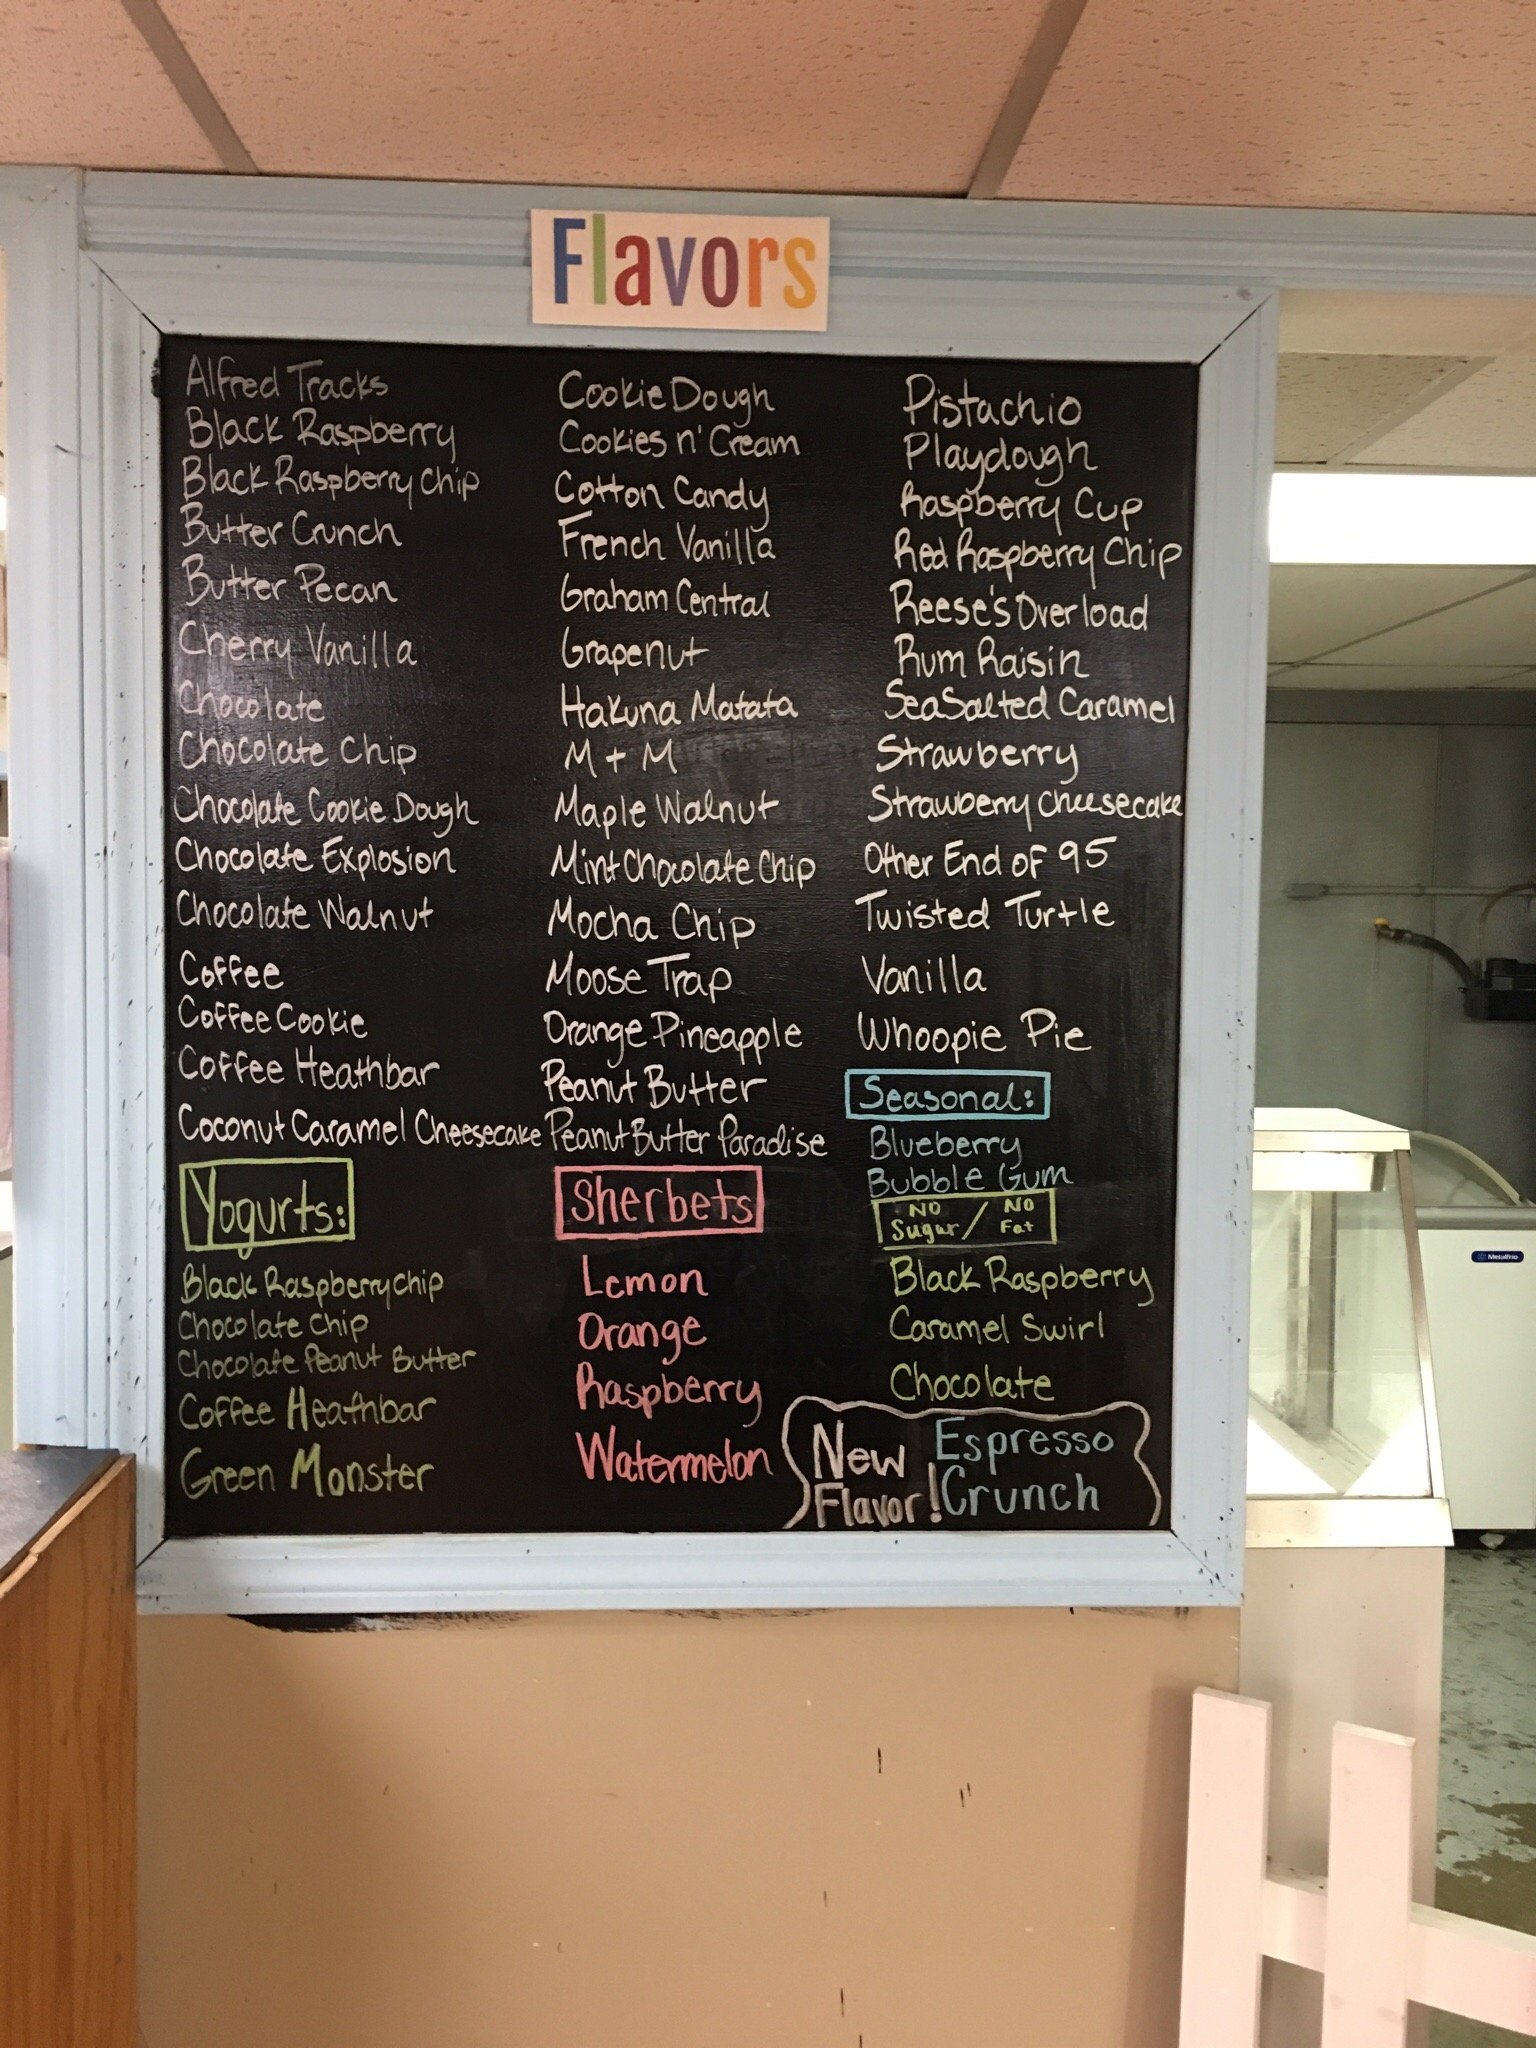 Flavors
Alfred Tracks
Black Raspberry
Black Raspberry Chip
Butter Crunch
Butter Pecan
Cherry Vanilla
Chocolate
Chocolate Chip
Chocolate Cookie Dough
Chocolate Explosion
Chocolate Walnut
Coffee
Coffee Cookie
Coffee Heathbar
Coconut Caramel Cheesecake
Yogurts:
Black Raspberry chip
Chocolate Chip
Chocolate Peanut Butter
Coffee Heathbar
Green Monster
Cookie Dough
Cookies n' Cream
Cotton Candy
French Vanilla
Graham Central
Grapenut
Hakuna Matata
M + M
Maple Walnut
Mint Chocolate Chip
Mocha Chip
Moose Trap
Orange Pineapple
Peanut Butter
Peanut Butter Paradise
Sherbets
Lemon
Orange
Raspberry
Watermelon
Pistachio
Playdough
Raspberry Cup
Red Raspberry Chip
Reese's Overload
Rum Raisin
Sea Salted Caramel
Strawberry
Strawberry Cheesecake
Other End of 95
Twisted Turtle
Vanilla
Whoopie Pie
Seasonal:
Blueberry
Bubble Gum
No Sugar / No Fat
Black Raspberry
Caramel Swirl
Chocolate
New Flavor!
Espresso
Crunch
Metalfrio